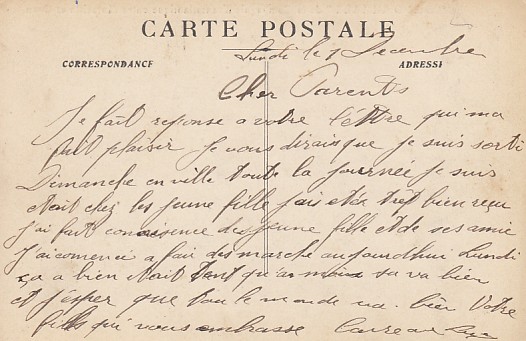 CARTE POSTALE
Lundi le 1 Decembre
CORRESPONDANCE
ADRESSE
Cher Parents
Je fait reponse a votre lettre qui ma
fait plaisir je vous dirais que je suis sorti
Dimanche en ville toute la journée je suis
etait chez les jeune fille j'ais etai tret bien reçu
j'ai fait conaisence des jeune fille et de ses amie
j'ai comenci a fair des marche aujourdhui Lundi
ça a bien etait tant qu'a moi sa va bien
et j'esper que tous le monde va bien Votre
fils qui vous embrasse